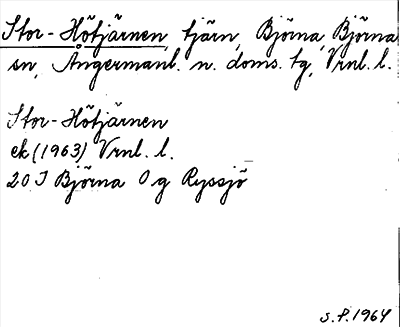 Stor-Hötjärnen, tjärn, Björna, Björna
sn, Ångermanl. n. doms. tg, Vrnl. l.
Stor-Hötjärnen
ek (1963) Vrnl. l.
20 I Björna O g Ryssjö
S.P. 1964